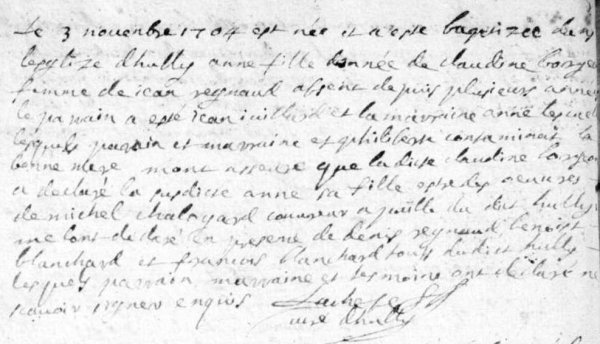 Le 3 novembre 1704 est née et a este baptizee dans
leglize dhully anne fille donnée de claudine
femme de jean regnaud absent depuis plusieurs années
le parrain a esté jean et la marraine anne
lesquels parrain et marraine et philiberte la
bonne mere mont asseuré que ladite claudine
a declaré la susdite anne sa fille estre des oeuvres
de michel couvreur a paille du dit hully
me lont declaré en presence de denis regnaud benoist
blanchard et francois blanchard tous dudit hully
lesquels parrain marraine et tesmoins ont declaré ne
scavoir signer enquis
curé dhully